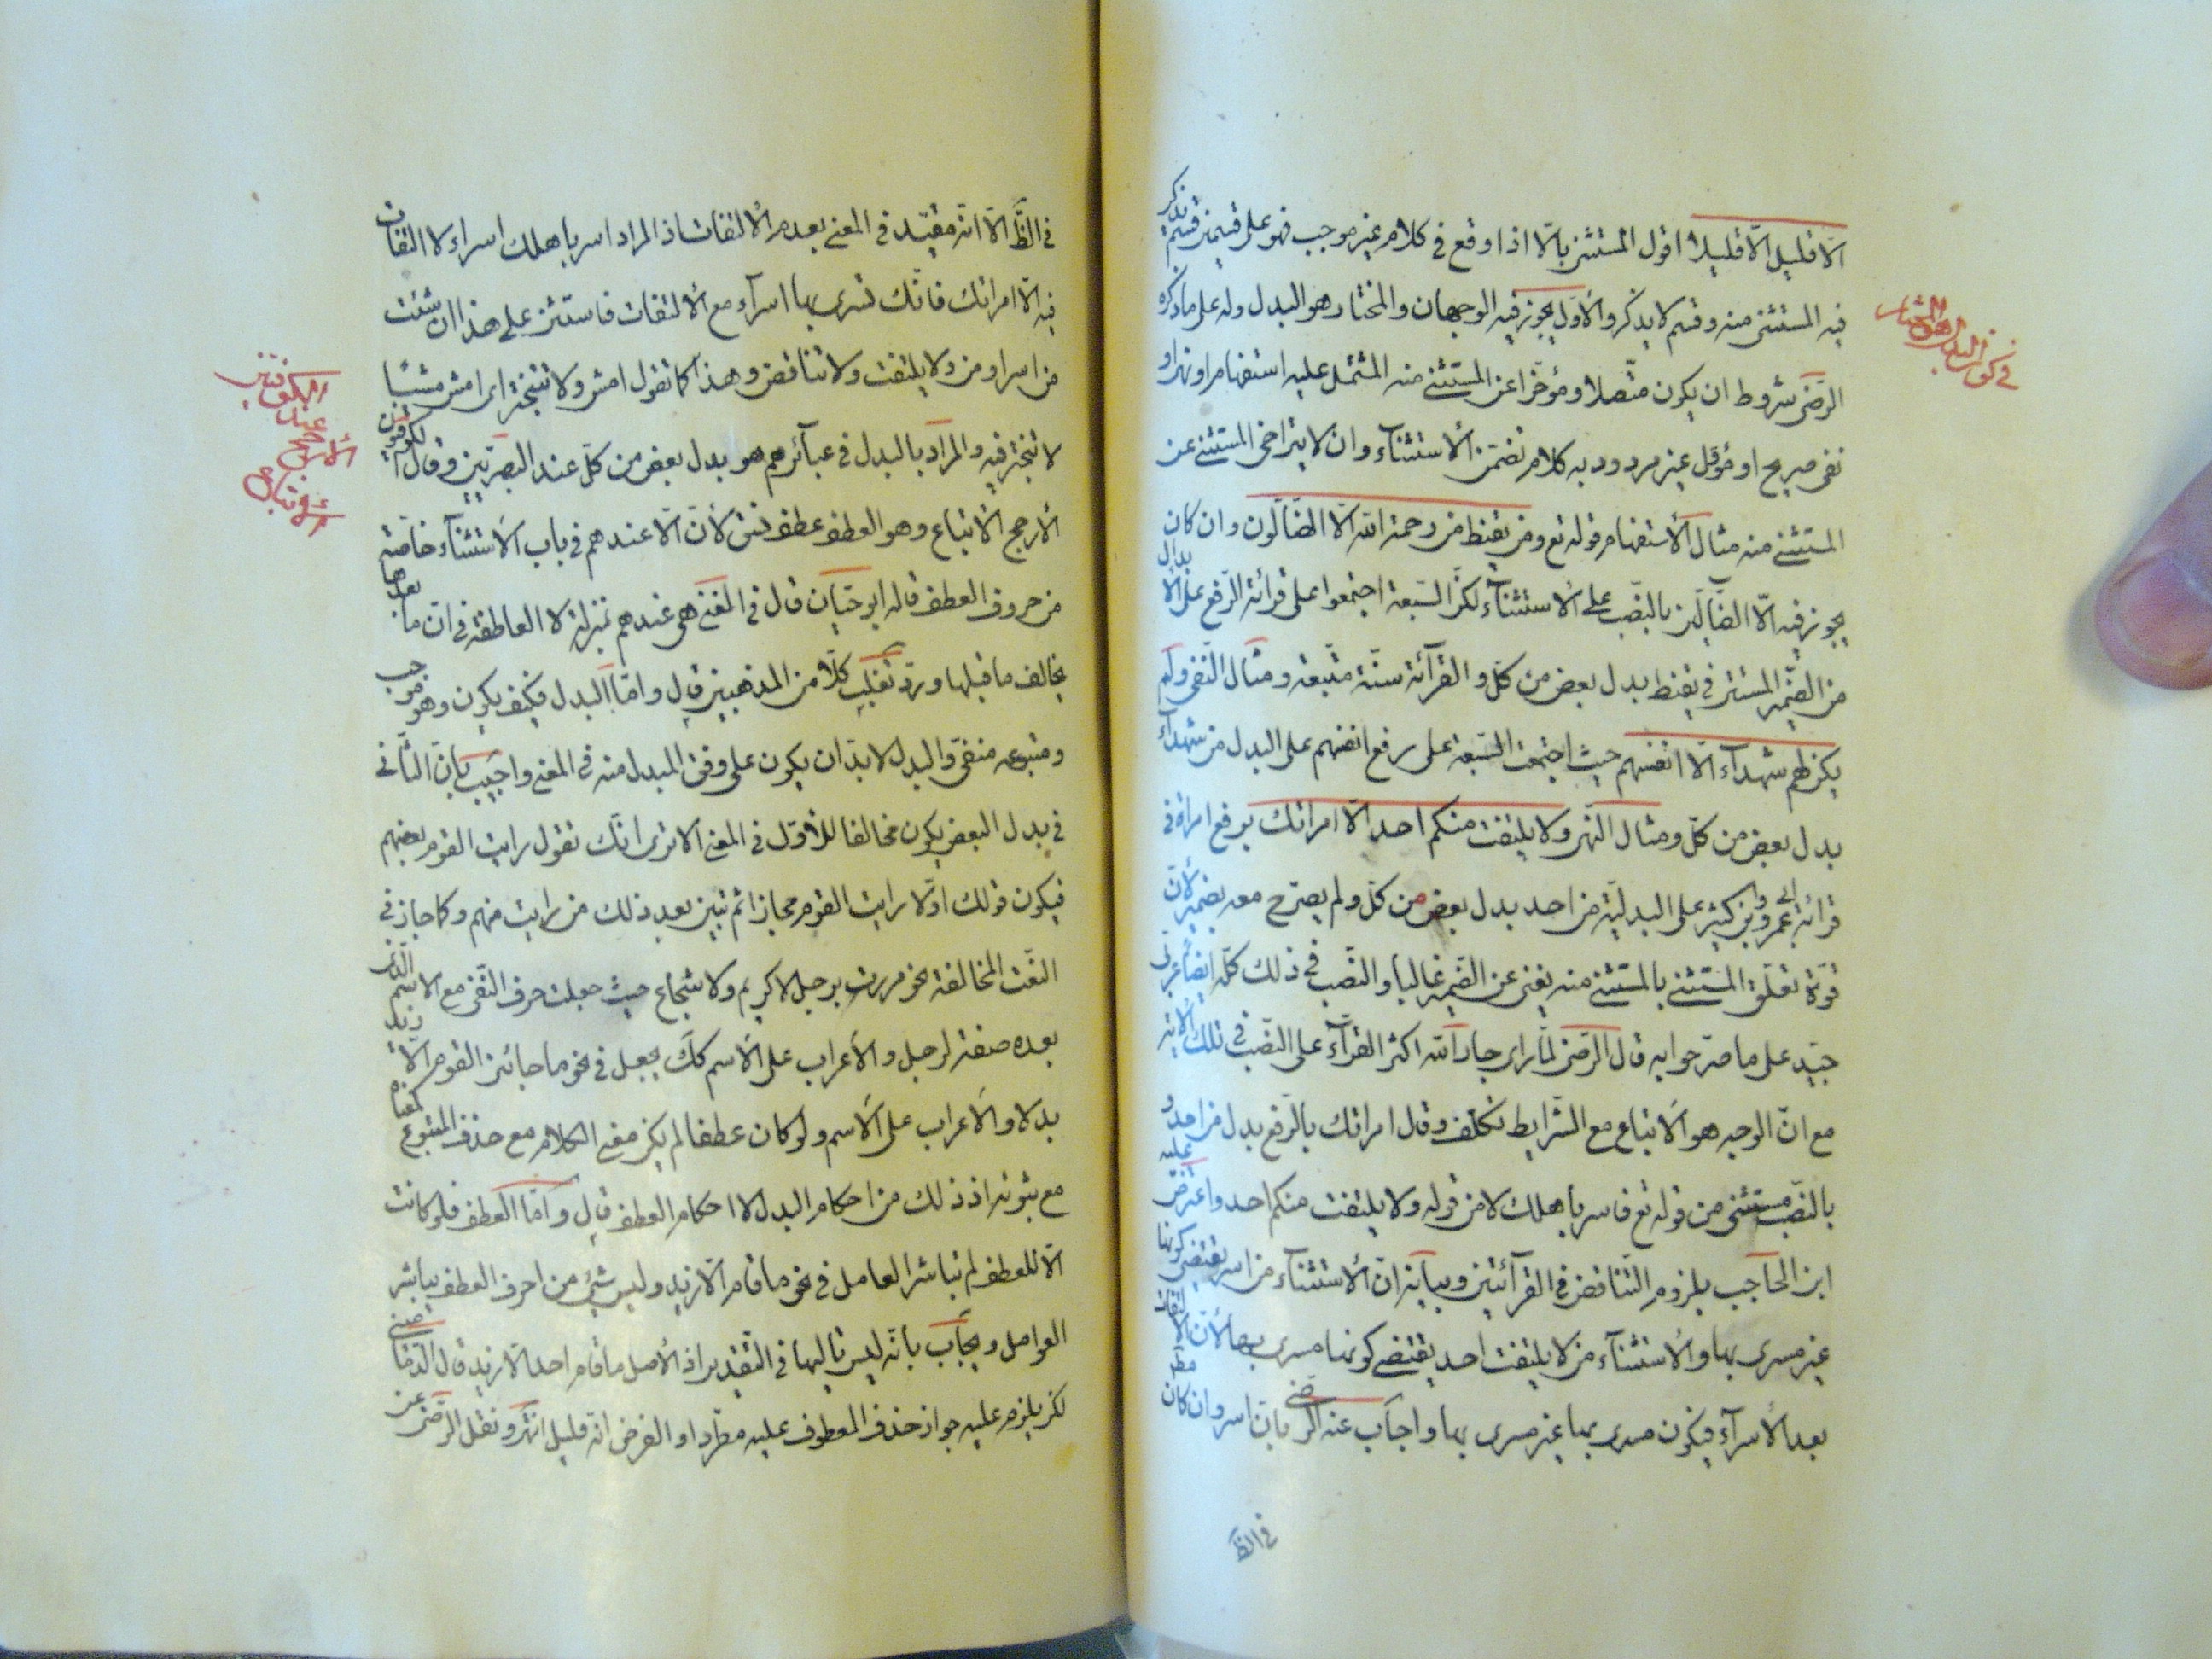 الا قليل الا قليلا اقول المستثنى بالا اذا وقع في كلام غير موجب فهو على قسمين قسم يذكر
فيه المستثنى منه وقسم لا يذكر والاول يجوز فيه الوجهان والمختار هو البدل وله على ما ذكره
الرضى شروط ان يكون متصلا ومؤخرا عن المستثنى منه المشتمل عليه استفهام او نهى او
نفى صريح او مؤول غير مردود به كلام تضمن الاستثناء وان لا يتراخى المستثنى عن
المستثنى منه مثال الاستفهام قوله تع ومن يقنط من رحمة الله الا الضالون وان كان
يجوز فيه الا الضالين بالنصب على الاستثناء لكن السبعة اجتمعوا على قرائة الرفع على الابدال
من الضمير المستتر في يقنط بدل بعض من كل والقرآئة سنة متبعة ومثال النفى ولم
يكن لهم شهدآء الا انفسهم حيث اجتمعت السبعة على رفع انفسهم على البدل من شهدآء
بدل بعض من كل ومثال النهى ولا يلتفت منكم احد الا امراتك برفع امراة في
قرائة ابى عمرو وابن كثير على البدلية من احد بدل بعض من كل ولم يصرح معه بضمير لان
قوة تعلق المستثنى بالمستثنى منه يغنى عن الضمير غالبا والنصب في ذلك كله ايضا عربى
جيد على ما صرحوا به قال الرضى لما راى جار الله اكثر القرآء على النصب في تلك الآية
مع ان الوجه هو الاتباع مع الشرايط تكلف وقال امراتك بالرفع بدل من احد و
بالنصب مستثنى من قوله تع فاسر باهلك لا من قوله ولا يلتفت منكم احد واعترض عليه
ابن الحاجب بلزوم التناقض في القرآئتين وبيانه ان الاستثناء من اسر يقتضى كونها
غير مسرى بها والاستثنآء من لا يلتفت احد يقتضى كونها مسرى بها لان الالتفات
بعد الاسرآء فيكون مسرى بها غير مسرى بها واجاب عنه الرضى بان اسر وان كان مط
في الظ
في كون البدل هو المختار
في الظ الا انه مقيد في المعنى بعدم الالتفات اذ المراد اسر باهلك اسراء لا التفات
فيه الا امراتك فانك تسرى بها اسرآء مع الالتفات فاستثن على هذا ان شئت
من اسر او من ولا يلتفت ولا تناقض وهذا كما تقول امش ولا تتبختر اى امش مشيا
لا تتبختر فيه والمراد بالبدل في عبآئرهم هو بدل بعض من كل عند البصريين وقال الكوفيون
الارجح الاتباع وهو العطف عطف نسق لان الا عندهم في باب الاستثنآء خاصة
من حروف العطف قاله ابو حيان قال في المغنى هى عندهم بمنزلة لا العاطفة في ان ما بعدها
يخالف ما قبلها ورد ثعلب كلا من المذهبين قال واما البدل فكيف يكون وهو موجب
ومتبوعه منفى والبدل لا بد ان يكون على وفق المبدل منه في المعنى واجيب بان الثانى
في بدل البعض يكون مخالفا للاول في المعنى الا ترى انك تقول رايت القوم بعضهم
فيكون قولك اولا رايت القوم مجازا ثم تبين بعد ذلك من رايت منهم وكما جاز في
النعت المخالفة نحو مررت برجل لا كريم ولا شجاع حيث جعلت حرف النفى مع الاسم الذى
بعده صفة لرجل والاعراب على الاسم كك يجعل في نحو ما جائنى القوم الا زيد
بدلا والاعراب على الاسم ولو كان عطفا لم يكن معنى الكلام مع حذف المتبوع كمعناه
مع ثبوته اذ ذلك من احكام البدل لا احكام العطف قال واما العطف فلو كانت
الا للعطف لم تباشر العامل في نحو ما قام الا زيد وليس شئ من احرف العطف يباشر
العوامل ويجاب بانه ليس تاليها في التقدير اذ الاصل ما قام احد الا زيد قال الدمامينى
لكن يلزم عليه جواز حذف المعطوف عليه مطردا والفرض انه قليل انتهى ونقل الرضى عن
الكوفيين
عند
الارجح
الاتباع